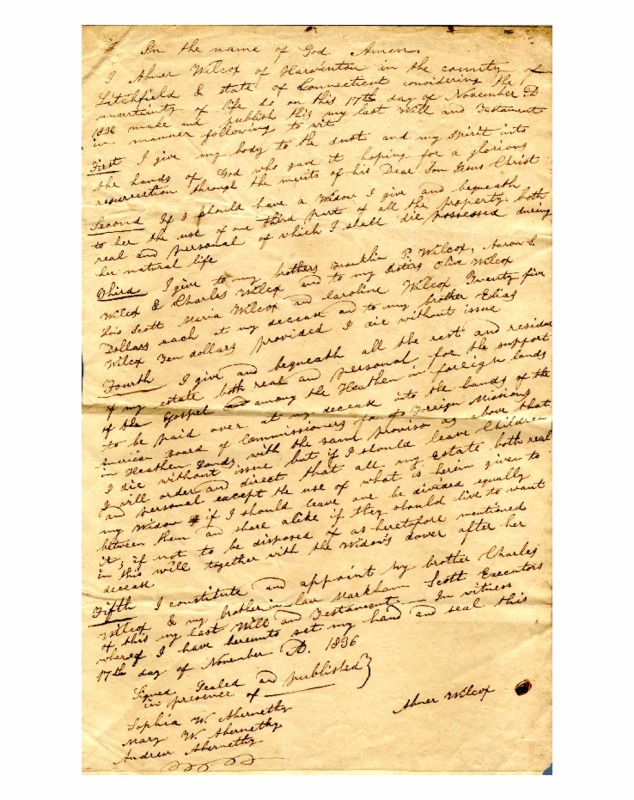 In the name of God Amen
I Abner Wilcox of Harwinton in the county of
Litchfield & state of Connecticut considering the
uncertainty of life do on this 17th day of November AD
1836 make and publish this my last Will and Testament
in manner following to vit
First I give my body to the dust and my spirit into
the hands of God who gave it hoping for a glorious
resurrection through the merits of his Dear Son Jesus Christ
Second If I should have a Widow I give and bequeath
to her the use of one third part of all the property both
real and personal of which I shall die possessed during
her natural life
Third I give to my brothers Franklin P. Wilcox, Aaron
Wilcox & Charles Wilcox and to my sisters Clive Wilcox
Lois Scott Maria Wilcox and Caroline Wilcox Twenty five
Dollars each at my decease and to my brother Elias
Wilcox Ten dollars provided I die without issue
Fourth I give and bequeath all the rest and residue
of my estate both real and personal for the support
of the Gospel among the Heathen in foreign lands
to be paid over at my decease into the hands of the
American Board of Commissioners for Foreign Missions
in Heathen Lands, with the same proviso as above that
I die without issue but if I should leave Children
I will order and direct that all my Estate both real
and personal except the use of what is herein given to
my Widow if I should leave one be divided equally
between them and share alike if they should live to want
it, if not to be disposed of as heretofore mentioned
in this will together with the Widow's dower after her
decease
Fifth I constitute and appoint my brother Charles
Wilcox & my brother in law Markham Scott Executors
of this my last Will and Testament In witness
whereof I have hereunto set my hand and seal this
17th day of November AD. 1836
Signed Sealed and published }
in presence of
Abner Wilcox
Sophia W. Abernethy
Mary W. Abernethy
Andrew Abernethy